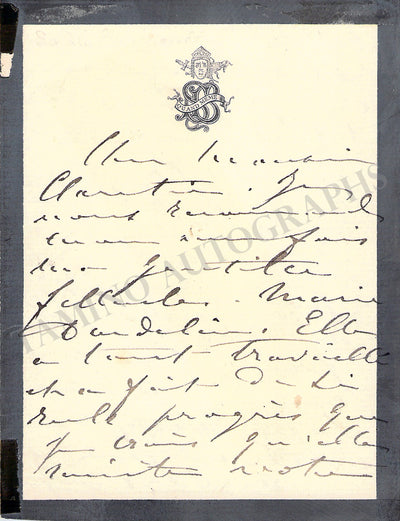 QUAND MEME
Cher Monsieur
Claretie. Je
vous recommande
encore une fois
ma gentille
filleule. Marie
Elle
a tant travaillé
et a fait de si
réels progrès que
je crois qu'elle
mérite votre
TAMINO AUTOGRAPHS